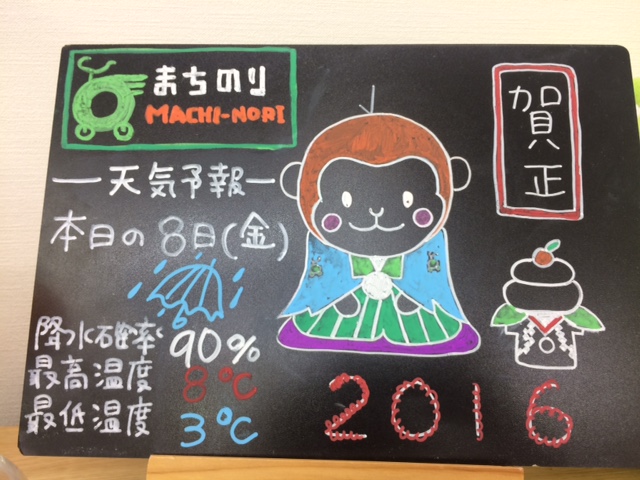 まちのり
MACHI-NORI
賀正
天気予報
本日の8日(金)
降水確率 90%
最高温度 8℃
最低温度 3℃
2016